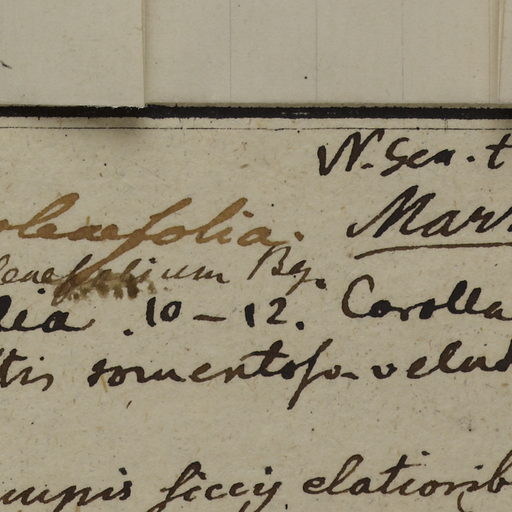 N. Gen. t
oleaefolia. Mart
leaefolium Bg.
lia 10-12. Corolla
tis tomentoso-velut
umpis siccis elatiorib